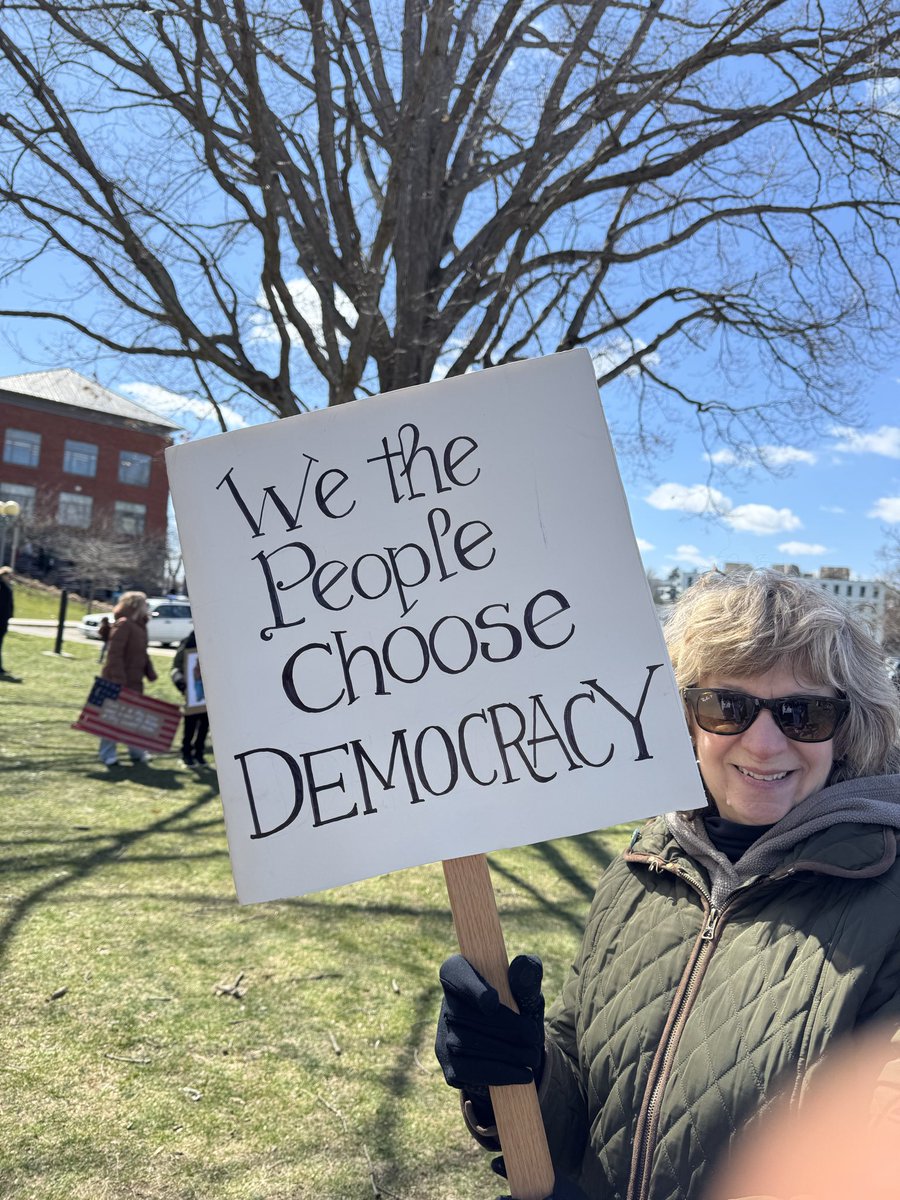 We the
People
Choose
DEMOCRACY